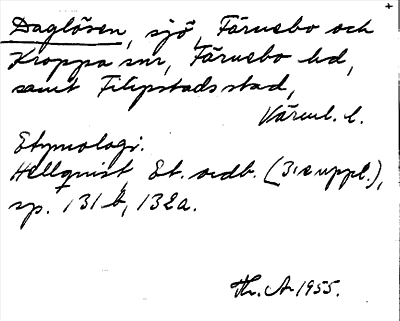 Daglösen, sjö, Färnebo och
Kroppa snr, Färnebo hd,
samt Filipstads stad,
Värml. l.
Etymologi.
Hellquist, Et. ordb. (3:e uppl.),
sp. 131 b, 132a.
Hr. A 1955.